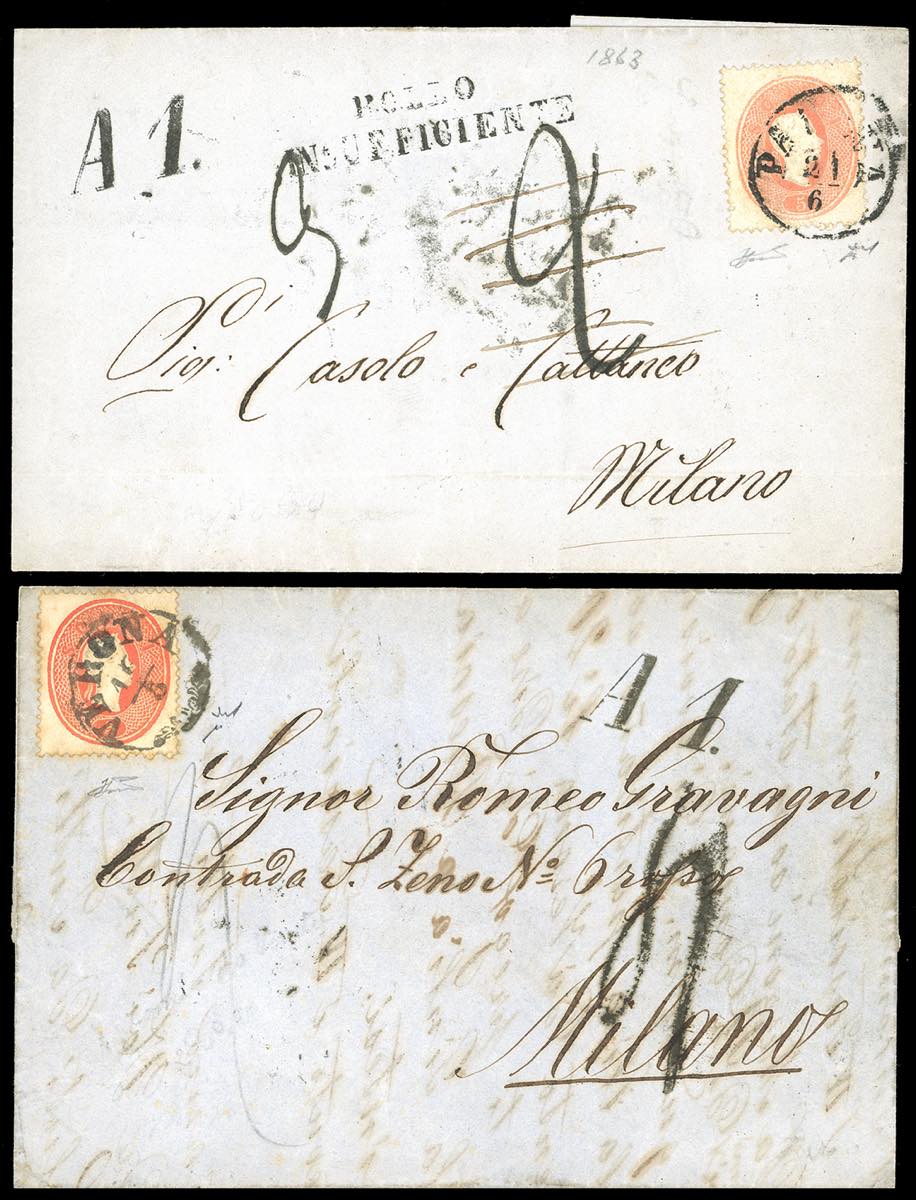 1863
A 1.
BOLLO
INSUFFICIENTE
21
6
9
Sigi: Casolo e Cattaneo
Milano
VERONA
A 1.
Signor Romeo Gravagni
Contrada S. Zeno No 6 rosso
Milano